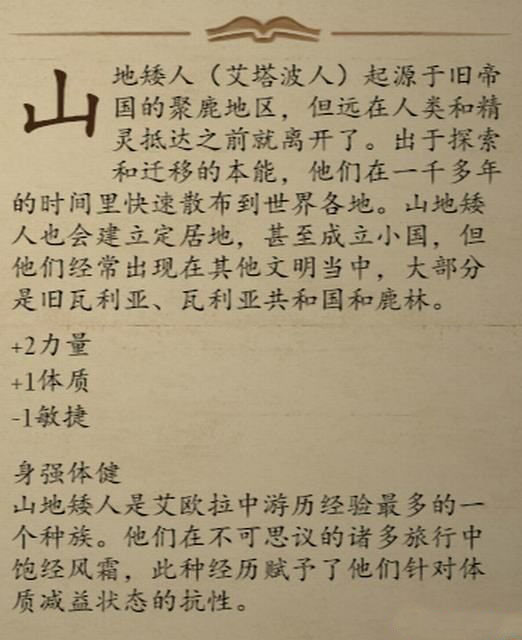 山地矮人（艾塔波人）起源于旧帝
国的聚鹿地区，但远在人类和精
灵抵达之前就离开了。出于探索
和迁移的本能，他们在一千多年
的时间里快速散布到世界各地。山地矮
人也会建立定居地，甚至成立小国，但
他们经常出现在其他文明当中，大部分
是旧瓦利亚、瓦利亚共和国和鹿林。
+2力量
+1体质
-1敏捷
身强体健
山地矮人是艾欧拉中游历经验最多的一
个种族。他们在不可思议的诸多旅行中
饱经风霜，此种经历赋予了他们针对体
质减益状态的抗性。